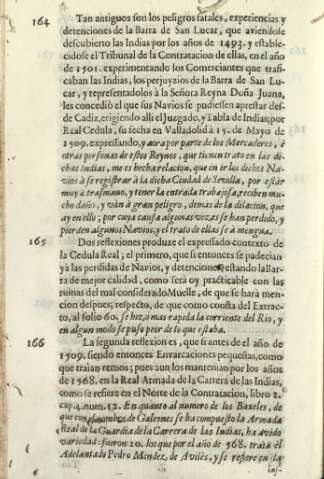 164 Tan antiguos son los peligros fatales, experiencias y
detenciones de la Barra de San Lucar, que aviendose
descubierto las Indias por los años de 1493. y estable-
cidose el Tribunal de la Contratacion de ellas, en el año
de 1501. experimentando los Comerciantes que trafi-
caban las Indias, los perjuyzios de la Barra de San Lu-
car, y representadolos à la Señora Reyna Doña Juana,
les concediò el que sus Navios se pudiessen aprestar des-
de Cadiz, erigiendo alli el Juzgado, y Tabla de Indias, por
Real Cedula, su fecha en Valladolid à 15. de Mayo de
1509. expressando, y aora por parte de los Mercaderes, è
otras personas de estos Reynos, que tienen trato en las di-
chas Indias, me es hecha relacion, que en ir los dichos Na-
vios à se registrar à la dicha Ciudad de Sevilla, por estàr
muy à trasmano, y tener la entrada trabajosa, reciben mu-
cho daño, y vàn à gran peligro, demàs de la dilacion, que
ay en ello; por cuya causa algunas vezes se han perdido, y
pierden algunos Navios, y el trato de ellas se à mengua.
165 Dos reflexiones produze el expressado contexto de
la Cedula Real; el primero, que si entonces se padecian
yà las perdidas de Navios, y detenciones, estando la Bar-
ra de mejor calidad, como serà oy practicable con las
ruinas del mal considerado Muelle, de que se harà men-
cion despues; respecto, de que como consta del Extrac-
to, al folio 60. se hizo mas rapida la corriente del Rio, y
en algun modo se puso peor de lo que estaba.
166 La segunda reflexion es, que si antes de el año de
1509. siendo entonces Envarcaciones pequeñas, como
que traian remos; pues aun los mantenian por los años
de 1568. en la Real Armada de la Carrera de las Indias,
como se refiere en el Norte de la Contratacion, libro 2.
cap. 4. num. 12. En quanto al numero de los Baxeles, de
que con nombre de Galeones se ha compuesto la Armada
Real de la Guardia de la Carrera de las Indias, ha avido
variedad: fueron 20. los que por el año de 568. traìa el
Adelantado Pedro Mendez de Avilès, y se refiere en la